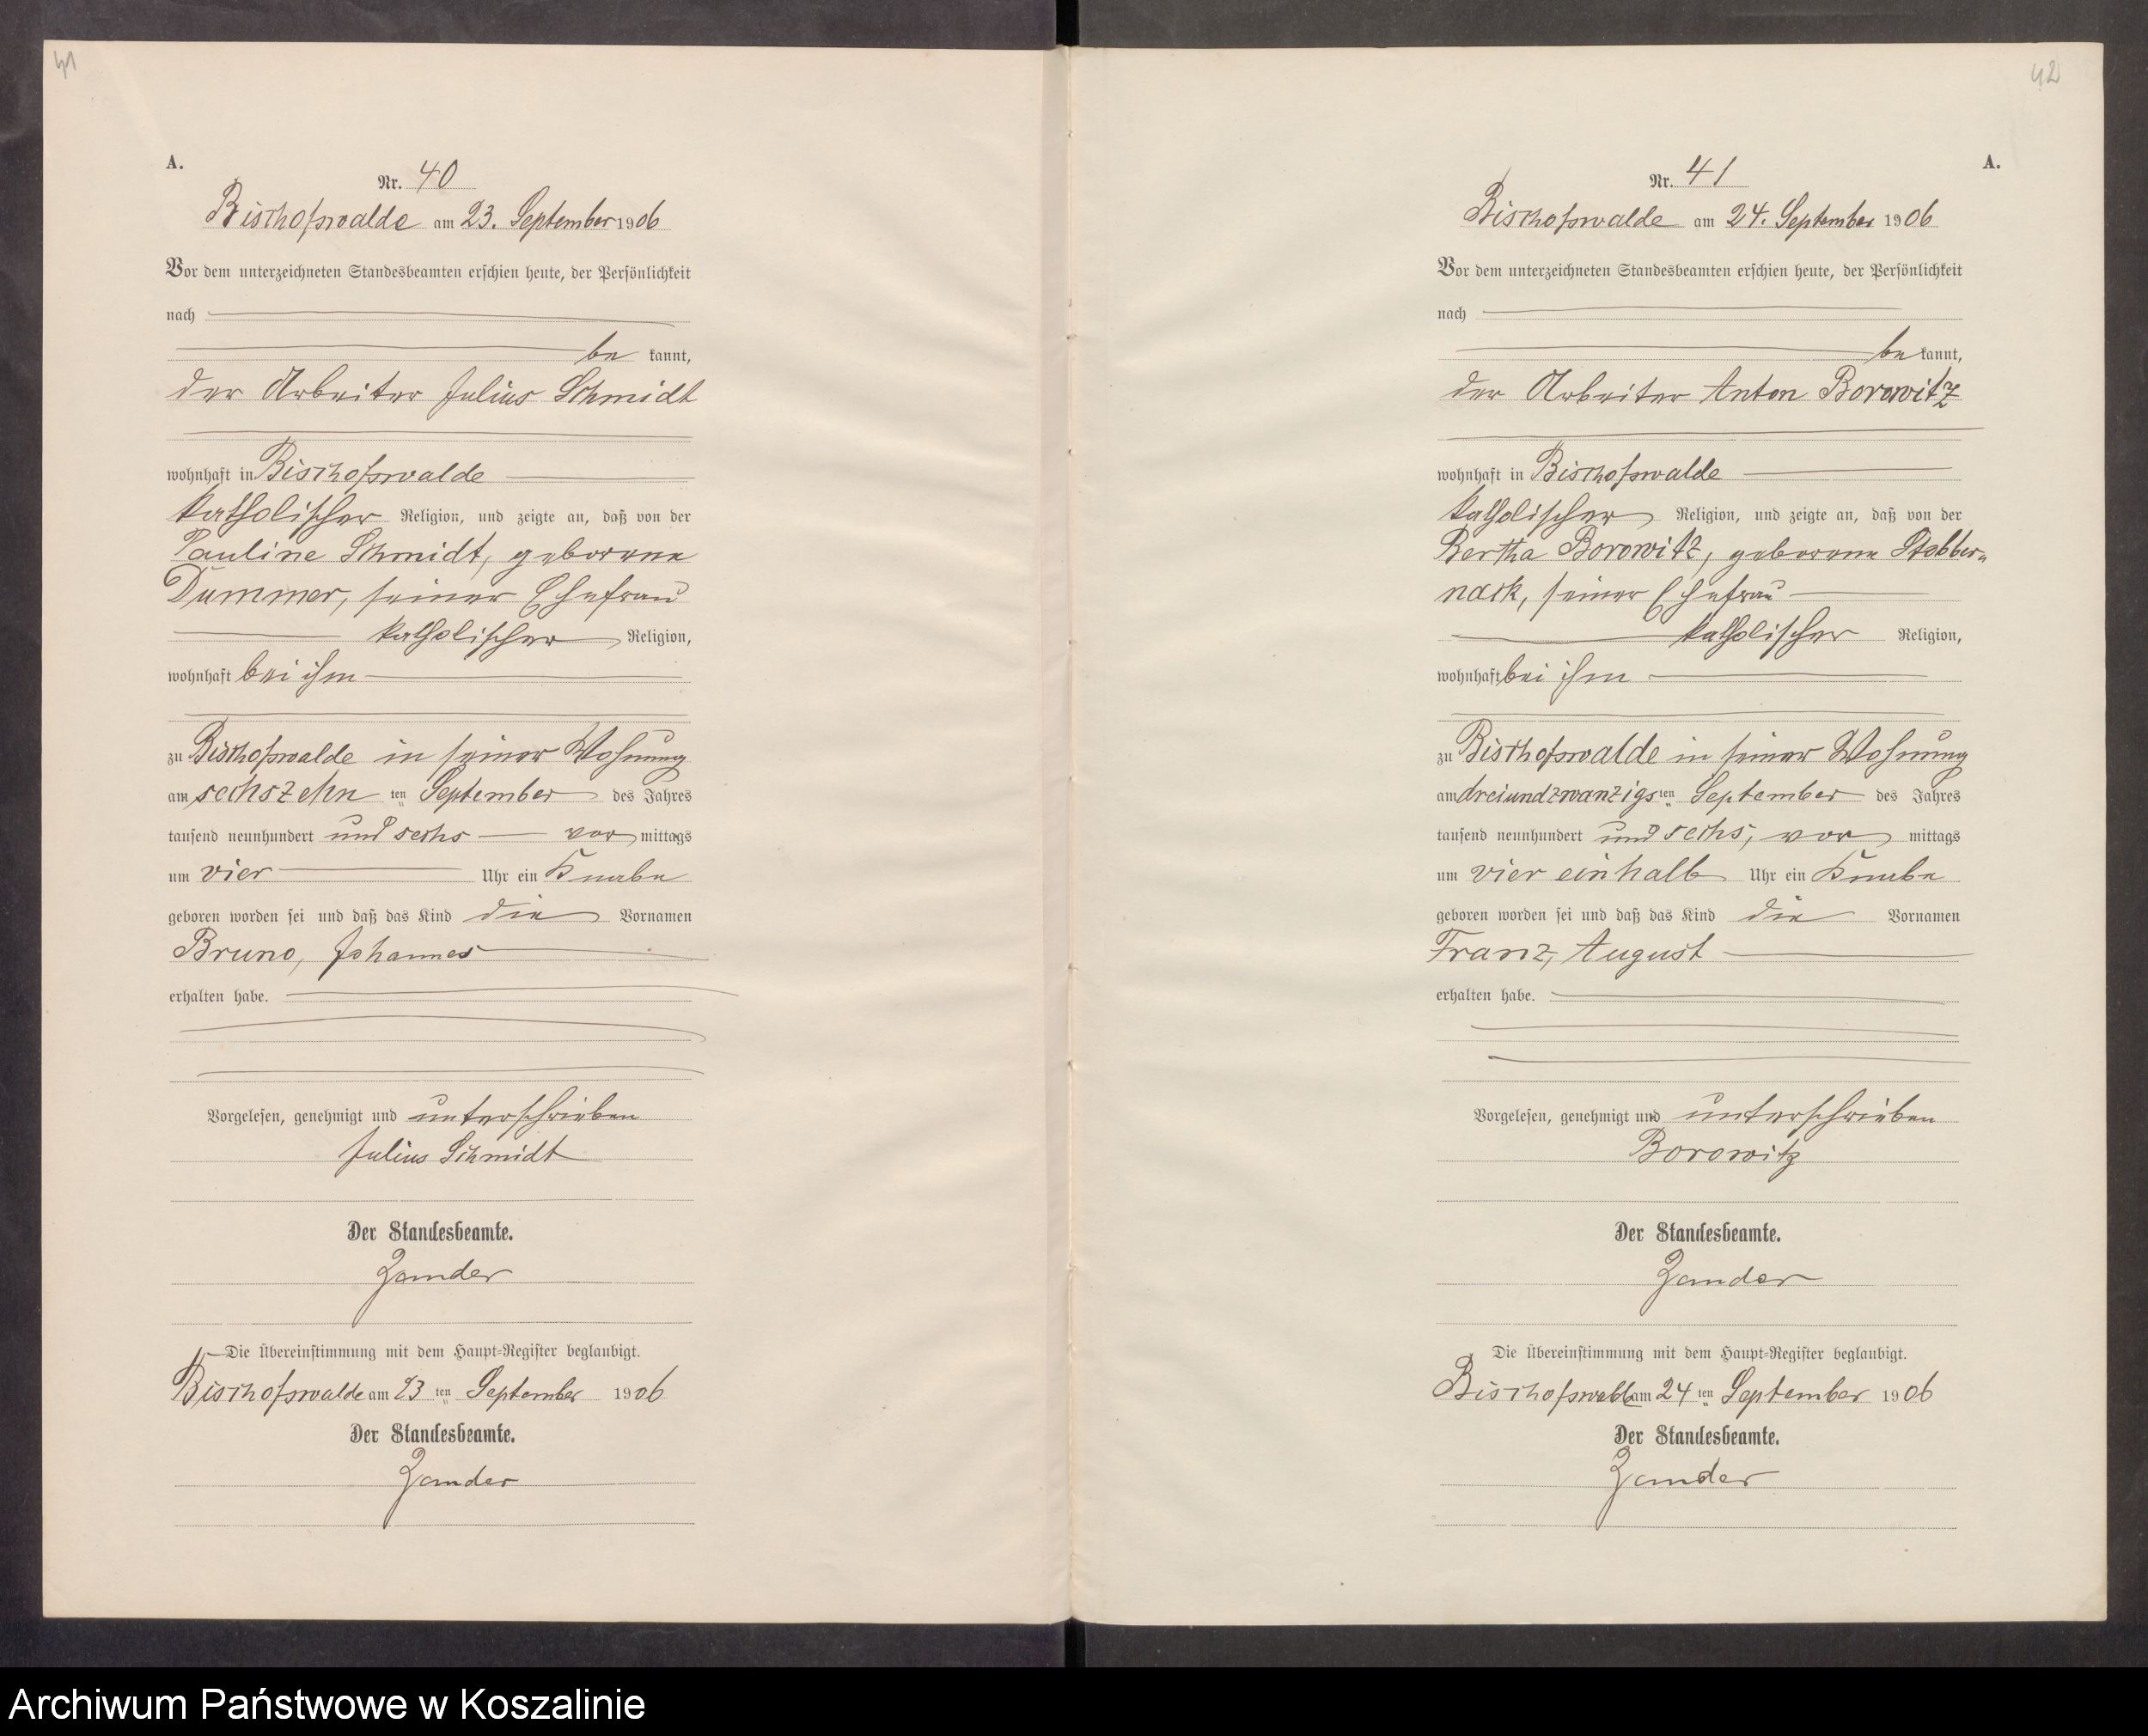 41
A.
Nr. 40
Bischofswalde am 23. September 1906
Vor dem unterzeichneten Standesbeamten erschien heute, der Persönlichkeit
nach
be kannt,
der Arbeiter Julius Schmidt
wohnhaft in Bischofswalde
katholischer Religion, und zeigte an, daß von der
Pauline Schmidt, geborene
Dummer, seiner Ehefrau
katholischer Religion,
wohnhaft bei ihm
zu Bischofswalde in seiner Wohnung
am sechszehn ten September des Jahres
tausend neunhundert und sechs vor mittags
um vier Uhr ein Knabe
geboren worden sei und daß das Kind die Vornamen
Bruno, Johannes
erhalten habe.
Vorgelesen, genehmigt und unterschrieben
Julius Schmidt
Der Standesbeamte.
Zander
Die Übereinstimmung mit dem Haupt-Register beglaubigt.
Bischofswalde am 23 ten September 1906
Der Standesbeamte.
Zander
42
A.
Nr. 41
Bischofswalde am 24. September 1906
Vor dem unterzeichneten Standesbeamten erschien heute, der Persönlichkeit
nach
be kannt,
der Arbeiter Anton Borowitz
wohnhaft in Bischofswalde
katholischer Religion, und zeigte an, daß von der
Bertha Borowitz, geborene Stobber-
nack, seiner Ehefrau
katholischer Religion,
wohnhaft bei ihm
zu Bischofswalde in seiner Wohnung
am dreiundzwanzigs ten September des Jahres
tausend neunhundert und sechs, vor mittags
um vier einhalb Uhr ein Knabe
geboren worden sei und daß das Kind die Vornamen
Franz, August
erhalten habe.
Vorgelesen, genehmigt und unterschrieben
Borowitz
Der Standesbeamte.
Zander
Die Übereinstimmung mit dem Haupt-Register beglaubigt.
Bischofswalde am 24 ten September 1906
Der Standesbeamte.
Zander
Archiwum Państwowe w Koszalinie